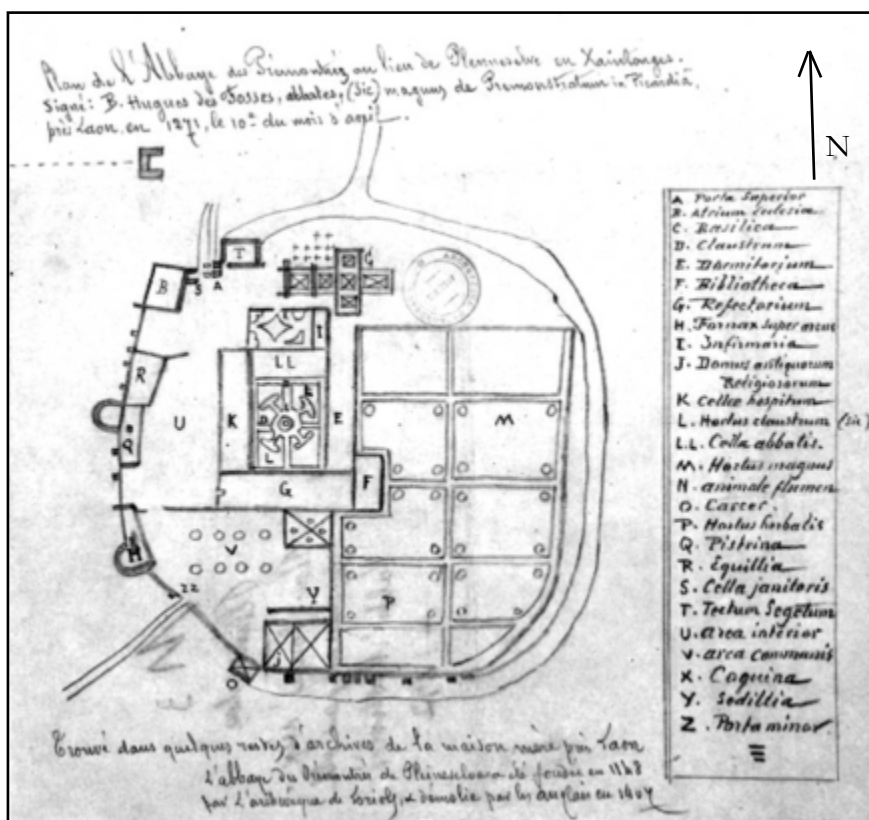 Plan de l'Abbaye des Prémontrés au lieu de Plenneselve en Xaintonges.
Signé: B. Hugues des Fosses, abbates, (sic) magnus de Premonstratum in Picardiâ,
près Laon, en 1271, le 10e du mois d'avril.
N
A Porta Superior
B. Atrium Eclesia
C. Basilica
D. Claustrum
E. Dormitorium
F. Bibliotheca
G. Refectorium
H. Fornax super
I. Infirmaria
J. Domus antiquorum
Religiosorum
K Cellæ hospitum
L. Hortus claustrum (sic)
LL. Cella abbatis.
M. Hortus magnus
N. animale flumen
O. Carcer.
P. Hortus herbalis
Q. Pistrina
R. Equillia
S. Cella janitoris
T. Tectum Segetum
U. area interior
V. area communis
X. Coquina
Y. Sedillia
Z. Porta minor
T
B
S
A
I
LL
R
U
K
E
M
L
D
L
Q
G
F
H
V
P
Y
ZZ
J
O
Trouvé dans quelques restes d'archives de la maison mère près Laon
L'abbaye des Prémontrés de été fondée en 1148
par L'archevêque de & démolie par les anglais en 1407